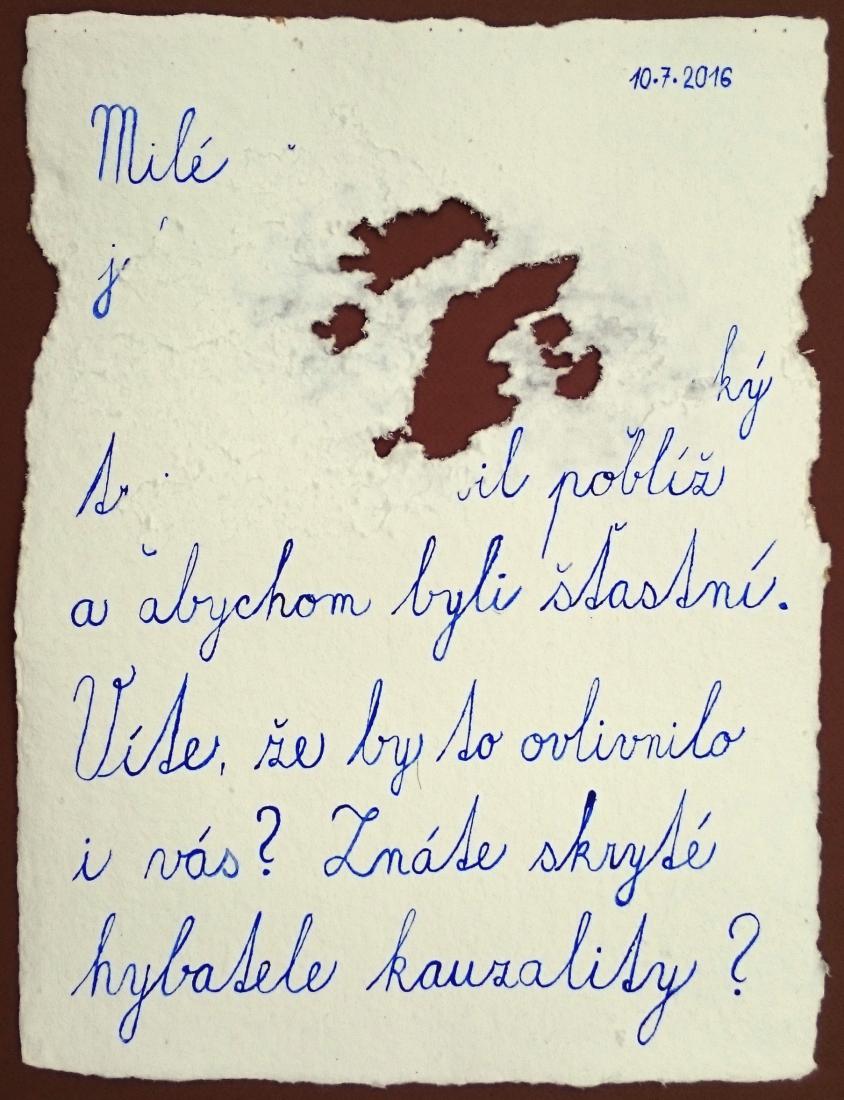 10.7.2016
Milé
ký
poblíž
a abychom byli šťastní.
Víte, že by to ovlivnilo
i vás? Znáte skryté
hybatele kauzality?